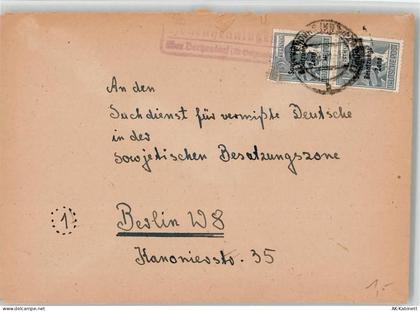 An den
Suchdienst für vermißte Deutsche
in der
sowjetischen Besatzungszone
1
Berlin W8
Kanonierstr. 35
1,-
AK-Kabinett